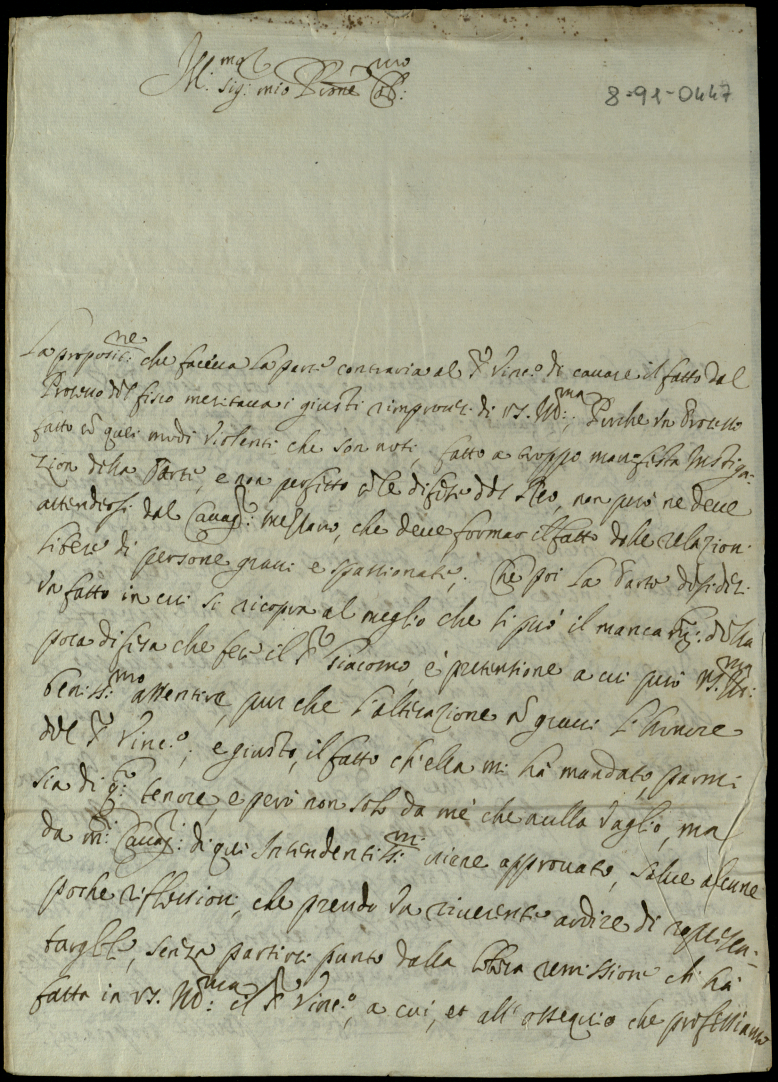 Ill:mo
Sig: mio Prone Col:mo
8-91-0447
La proposit:ne che faceua la parte contraria al Sr Vinc:o di cauare il fatto dal
Processo del fisco meritaua i giusti rimproueri di V.S. Ill:ma, perche un Processo
fatto con quei modi violenti che son noti, fatto a troppo manifesta instiga-
zion della Parte, e non perfetto con le difese del Reo, non può ne deve
attendersi dal Caual: mezzano, che deue formar il fatto dalle relazioni
libere di persone graui e spassionate. Che poi la Parte desideri
un fatto in cui si ricopra al meglio che si può il manca della
poca difesa che fece il Sr Giacomo, è pretensione a cui può V.S. Ill:ma
beniss:mo assentire, pur che l'alterazione non graui l'honore
del Sr Vinc:o; e giusto, il fatto ch'ella mi hà mandato, parmi
sia di q:to tenore, e però non solo da mè che nulla vaglio, ma
da m: Caual: di quei Intendentiss:mi viene approuato, salue alcune
poche riflessioni, che prendo un riuerente ardire di represen-
targli, senza partirci punto dalla remissione ch' hà
fatta in V.S. Ill:ma il Sr Vinc:o, a cui, et all' ossequio che professiamo